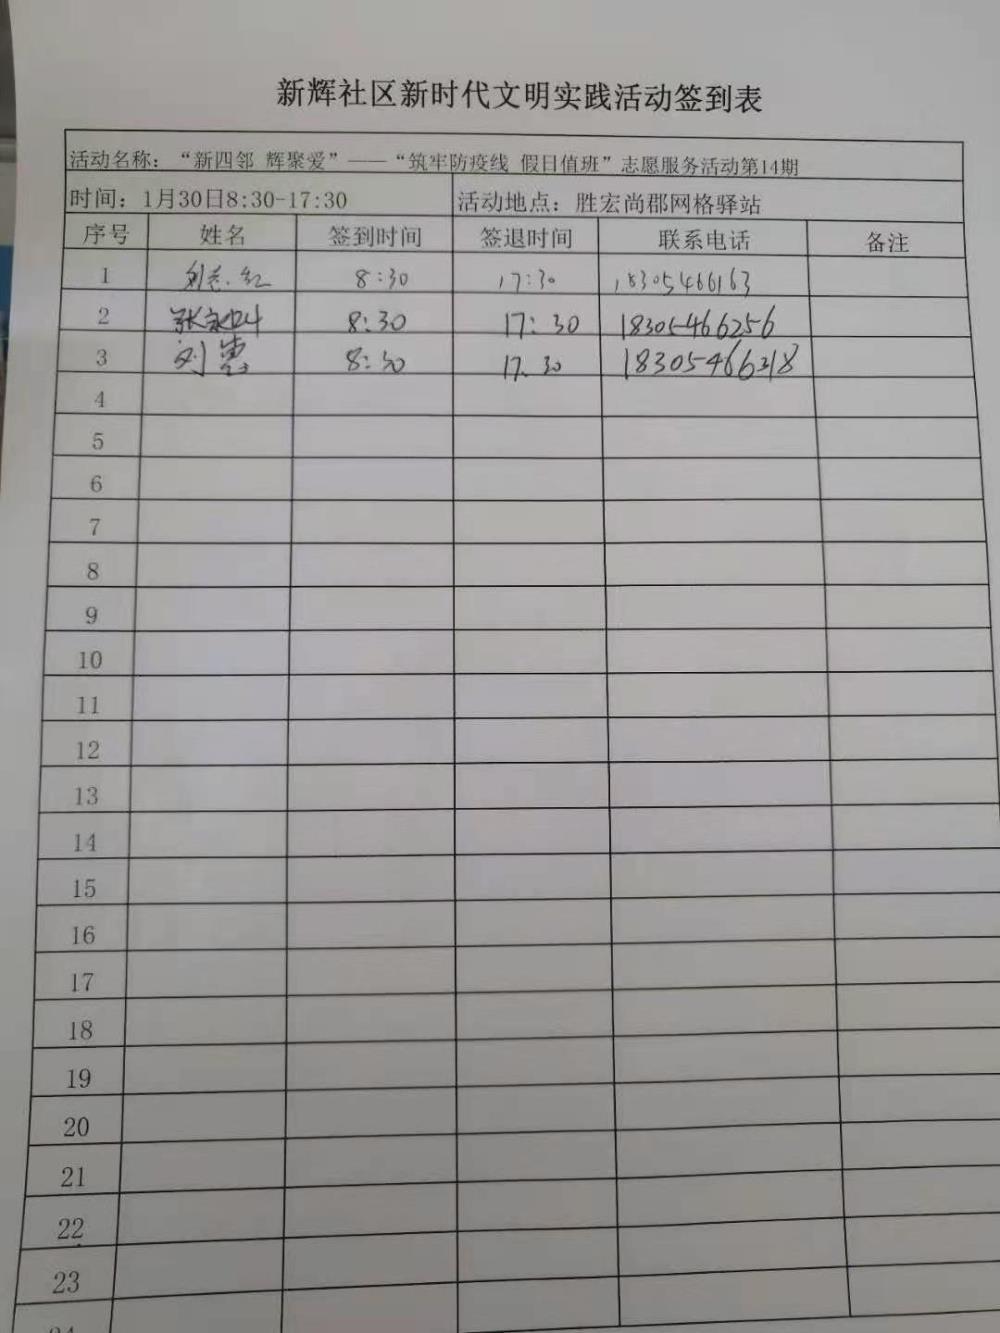 新辉社区新时代文明实践活动签到表
活动名称：“新四邻 辉聚爱”——“筑牢防疫线 假日值班”志愿服务活动第14期
时间：1月30日8:30-17:30 活动地点：胜宏尚郡网格驿站
序号 姓名 签到时间 签退时间 联系电话 备注
1 8:30 17:30 18305466163
2 8:30 17:30 18305466256
3 刘 8:30 17.30 18305466318
4
5
6
7
8
9
10
11
12
13
14
15
16
17
18
19
20
21
22
23